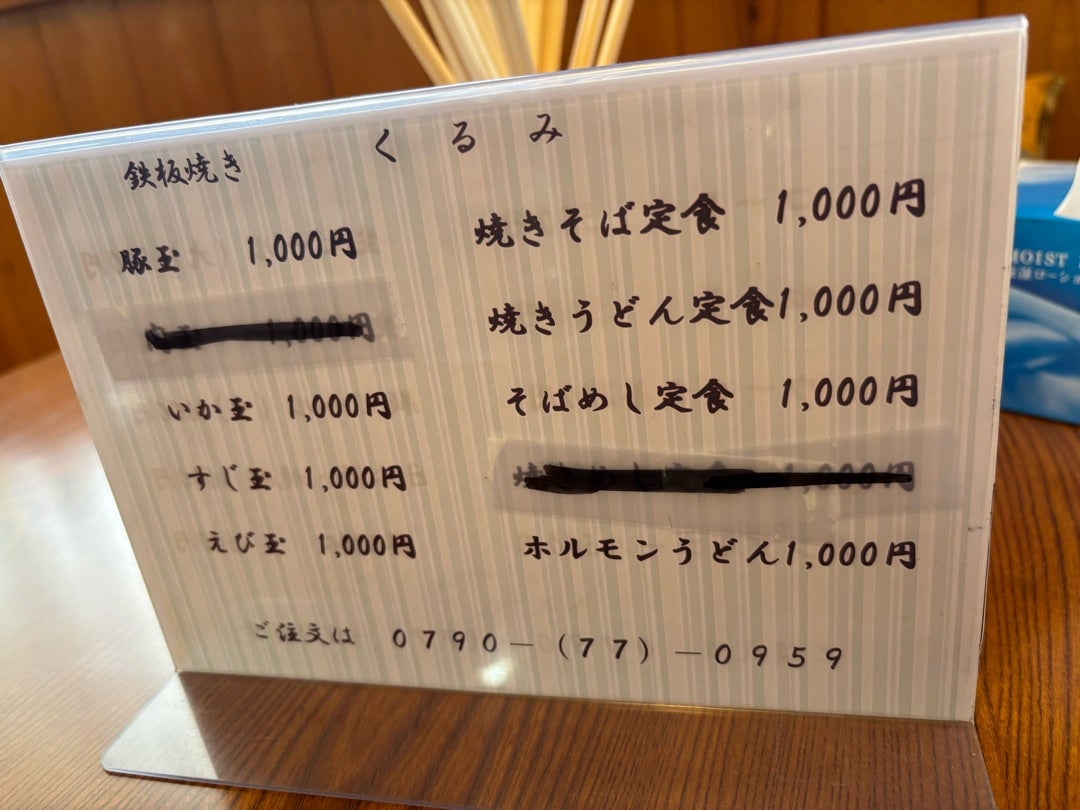 くるみ
鉄板焼き
豚玉 1,000円
1,000円
いか玉 1,000円
すじ玉 1,000円
えび玉 1,000円
焼きそば定食 1,000円
焼きうどん定食1,000円
そばめし定食 1,000円
焼きめし定食 1,000円
ホルモンうどん1,000円
ご注文は 0790-(77)-0959
MOIST